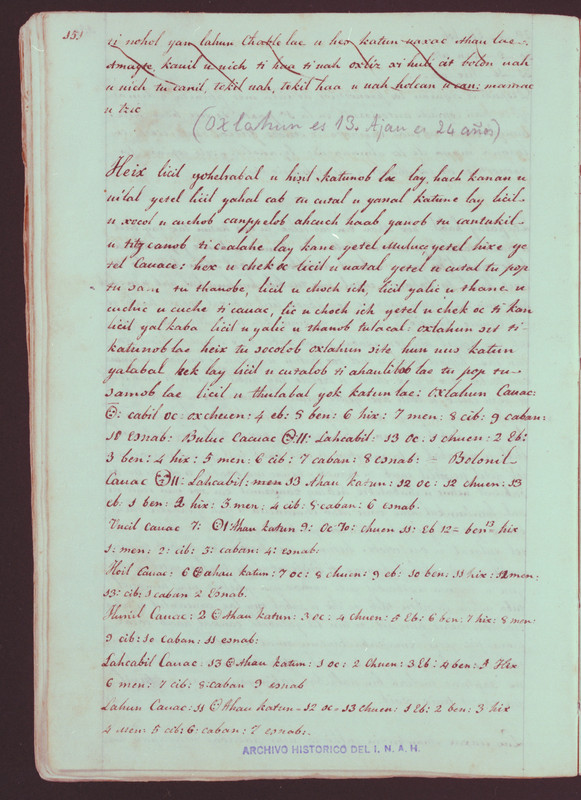 151
ti nohol yan lahun Chable lae u hex katun uaxac Ahau lae.
Amayte kauil u uich ti haa ti uah oxliz xi hun cit bolon uah
u uich tu canil, tekil uah, tekil haa u uah holcan u can: mamac
u tzic
(Oxlahun es 13. Ajau es 24 años)
Heix licil yohelrabal u hisil katunob lae lay hach kanan u
u'ilal yetel licil yahal cab tu cutal u yanal katune lay licil
u xocol u cuchob canppelob ahcuch haab yanob tu cantukil
u titz canob ti calahe lay kane yetel Muluc yetel hixe ye
tel Cauace: hex u chek oc licil u natal yetel u cutal tu pop
tu sam tu thanobe, licil u choch ich, licil yalic u thane u
cuchic u cuche ti cauac, lic u choch ich yetel u chek oc ti kan
licil yal kaba licil u yalic u thanob tulacal: oxlahun ses ti
katunob lae heix tu socolob oxlahun site hun nus katun
yalabal kek lay licil u cutalob ti ahaulilob lae tu pop tu
samob lae licil u thulabal yok katun lac: Oxlahun Cauac:
: cabil oc: ox chuen: 4 eb: 5 ben: 6 hix: 7 men: 8 cib: 9 caban:
10 Esnab: Buluc Cacuac 11: Lahcabil: 13 Oc: 1 chuen: 2 Eb:
3 ben: 4 hix: 5 men: 6 cib: 7 caban: 8 esnab: = Bolonil
Cauac 11: Lahcabil: men 13 Ahau katun: 12 oc: 12 chuen: 13
eb: 1 ben: 2 hix: 3 men: 4 cib: 8 caban: 6 esnab.
Uucil cauac 7: 1 Ahau katun 9: Oc 10: chuen 11: Eb 12= ben 13 hix
1: men: 2: cib: 3: caban: 4: esnab:
Hoil Cauac: 6 ahau katun: 7 oc: 8 chuen: 9 eb: 10 ben: 11 hix: 12 men:
13: cib: 1 caban 2 Esnab.
Hunil Cauac: 2 Ahau katun: 3 oc: 4 chuen: 5 Eb: 6 ben: 7 hix: 8 men:
9 cib: 10 Caban: 11 esnab:
Lahcabil Cauac: 13 Ahau katun: 1 oc: 2 Chuen: 3 Eb: 4 ben: 5 Hix
6 men: 7 cib: 8: caban 9 esnab
Lahun Cauac: 11 Ahau katun- 12 oc- 13 chuen: 1 Eb: 2 ben: 3 hix
4 Men: 5 cib: 6: caban: 7 esnab:.
ARCHIVO HISTORICO DEL I. N. A. H.